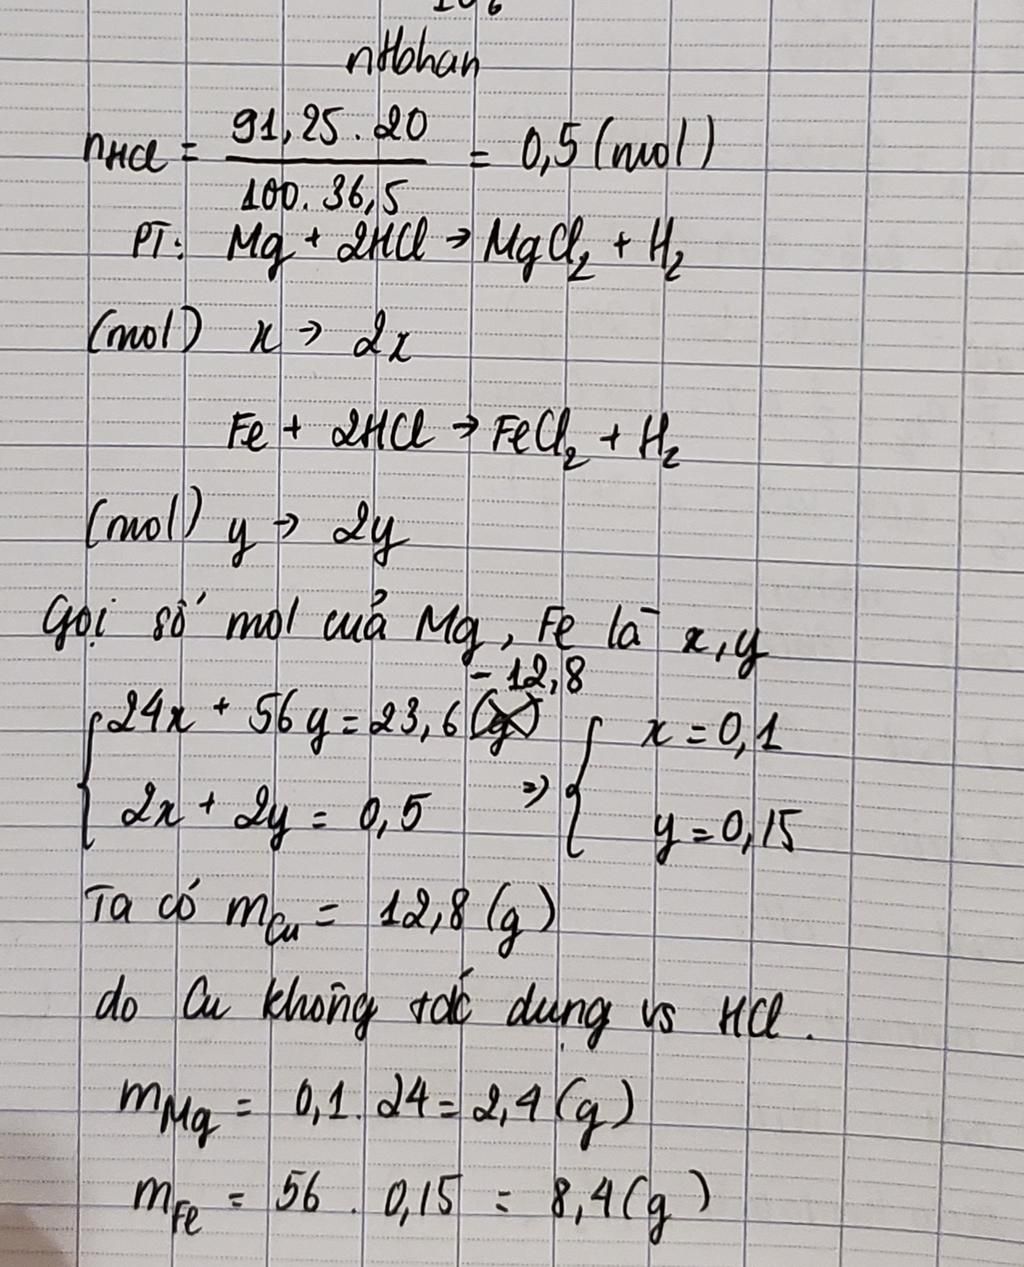 nHbhan
nHCl = 91,25 . 20 / 100 . 36,5 = 0,5 (mol)
PT: Mg + 2HCl → MgCl2 + H2
(mol) x → 2x
Fe + 2HCl → FeCl2 + H2
(mol) y → 2y
Gọi số mol của Mg, Fe là x, y
- 12,8
24x + 56y = 23,6 (g) x = 0,1
2x + 2y = 0,5 => y = 0,15
Ta có mCu = 12,8 (g)
do Cu không tác dụng vs HCl.
mMg = 0,1 . 24 = 2,4 (g)
mFe = 56 . 0,15 = 8,4 (g)